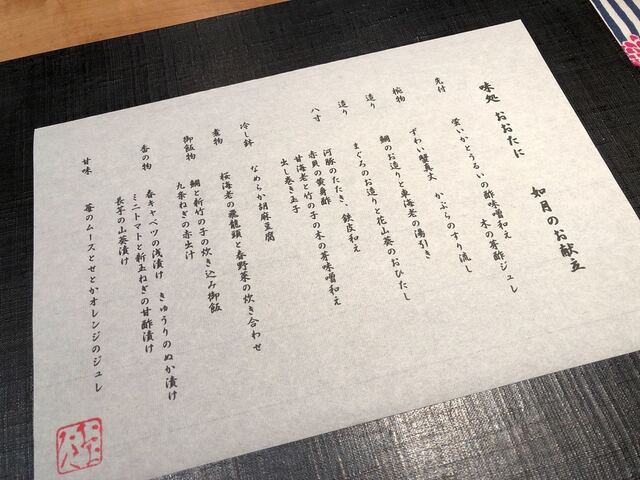 味処 おおたに
如月のお献立
先付
蛍いかとうるいの酢味噌和え 木の芽酢ジュレ
椀物
ずわい蟹真丈 かぶらのすり流し
造り
鯛のお造りと車海老の湯引き
造り
まぐろのお造りと花山葵のおひたし
八寸
河豚のたたき、鉄皮和え
赤貝の黄身酢
甘海老と竹の子の木の芽味噌和え
出し巻き玉子
冷し鉢
なめらか胡麻豆腐
煮物
桜海老の飛龍頭と春野菜の炊き合わせ
御飯物
鯛と新竹の子の炊き込み御飯
九条ねぎの赤出汁
香の物
春キャベツの浅漬け きゅうりのぬか漬け
ミニトマトと新玉ねぎの甘酢漬け
長芋の山葵漬け
甘味
苺のムースとせとかオレンジのジュレ